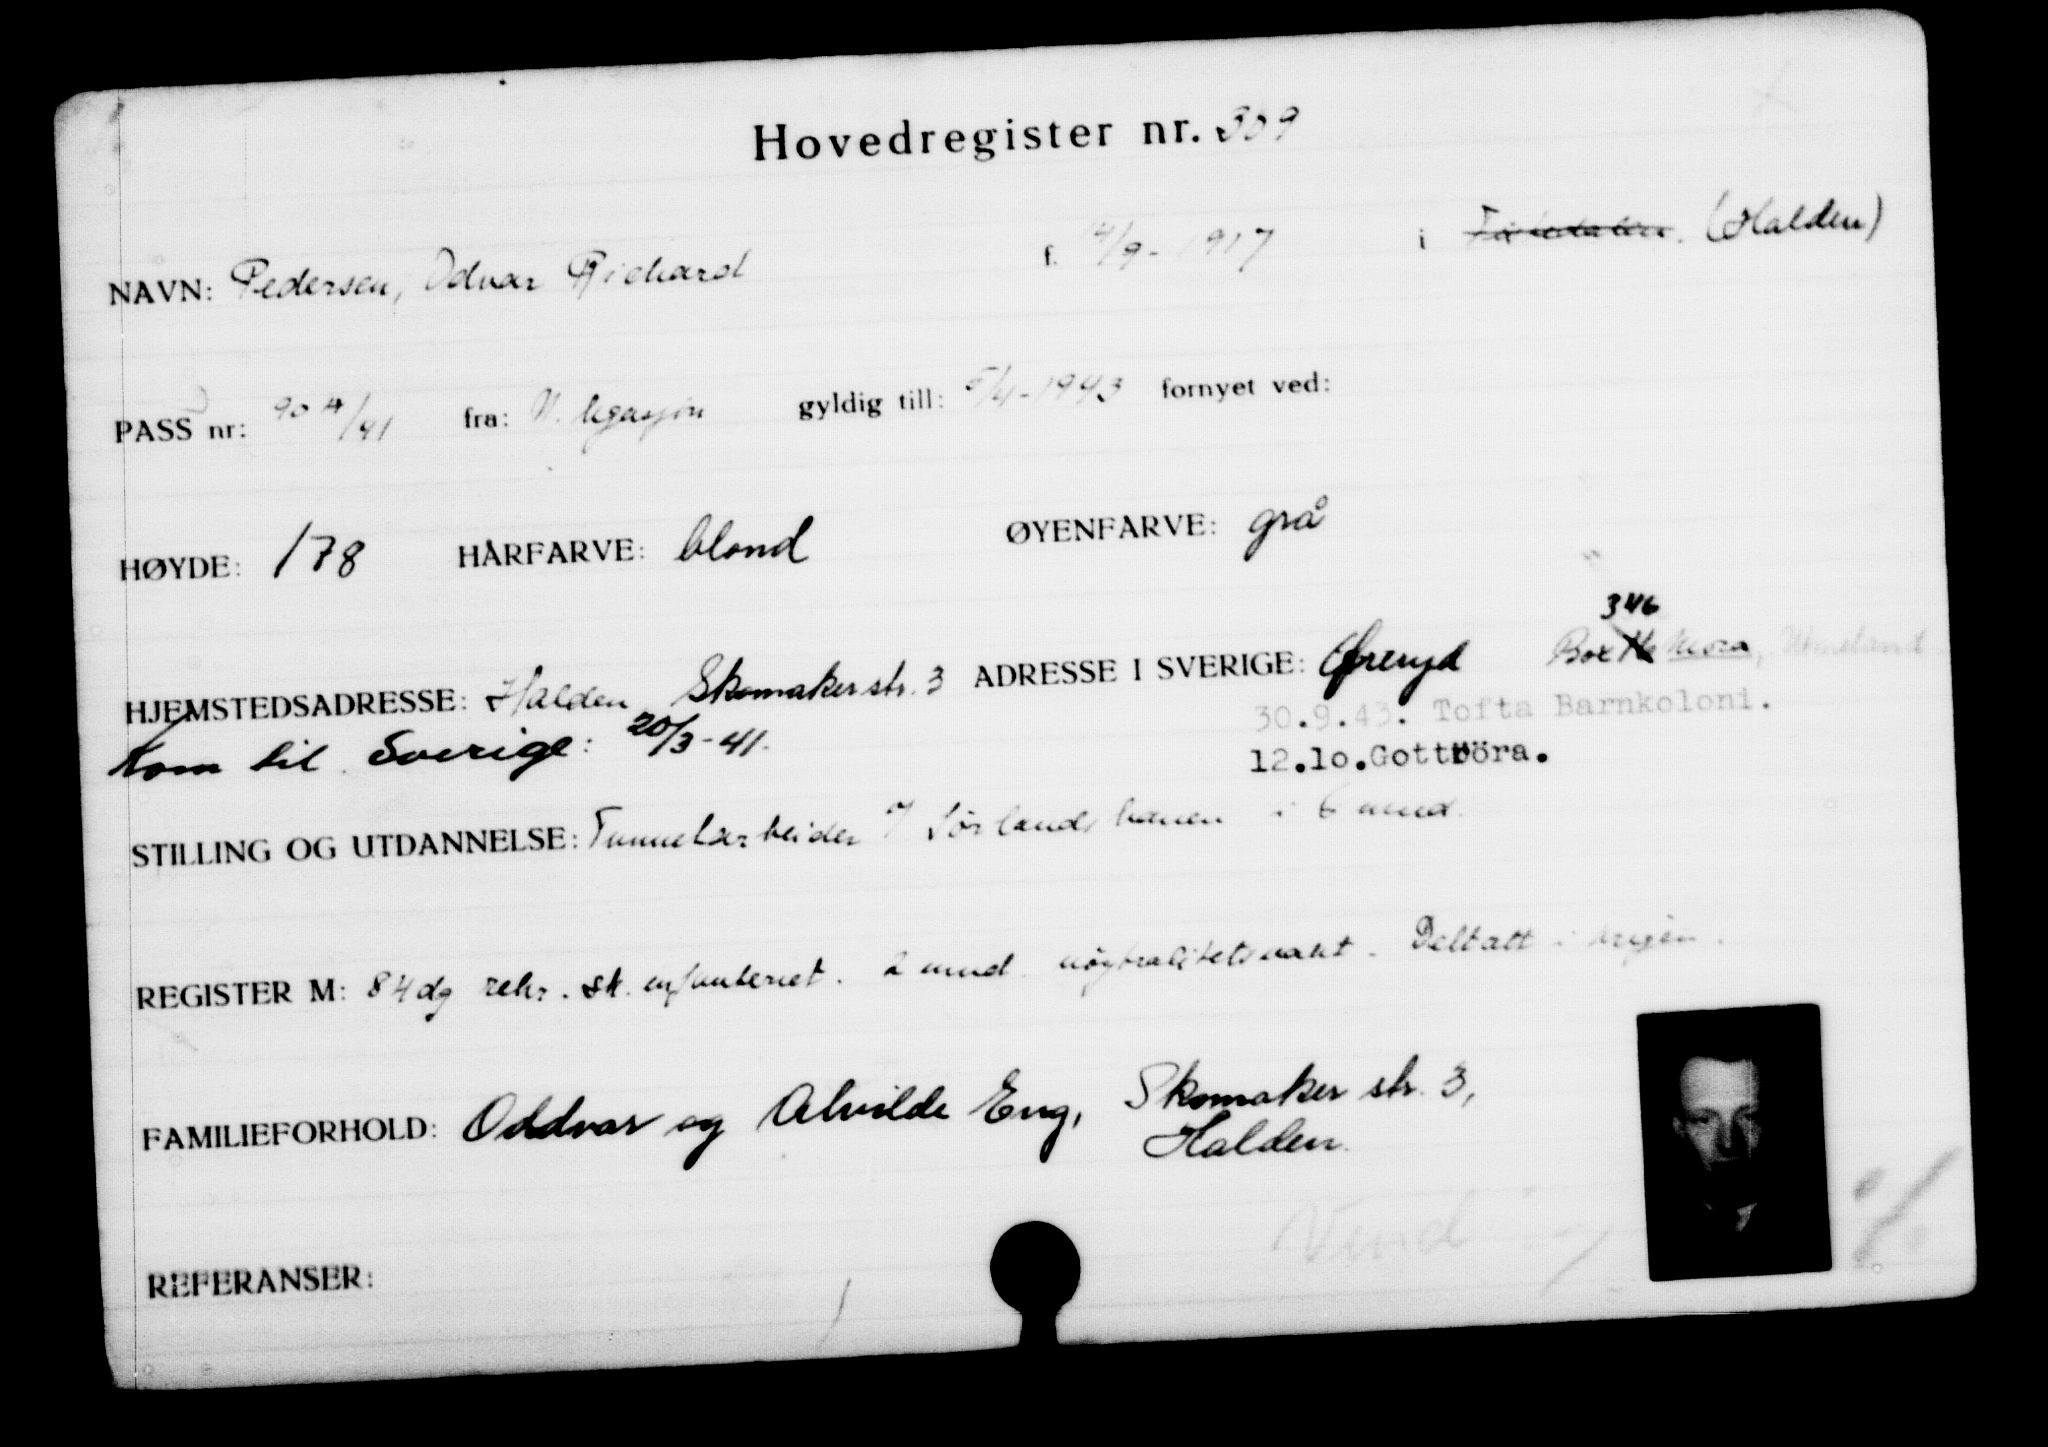 Hovedregister nr. 309
NAVN: Pedersen, Odvar Richard f. 14/9-1917 i (Halden)
PASS nr: 90 /41 fra: N. legasjon gyldig till: 5/4-1943 fornyet ved:
HØYDE: 178 HÅRFARVE: blond ØYENFARVE: grå
346
HJEMSTEDSADRESSE: Halden, Skomakerstr. 3 ADRESSE I SVERIGE: Øreryd Box Mora,
30.9.43. Tofta Barnkoloni.
Kom til Sverige: 20/3-41.
12.10.Gottröra.
STILLING OG UTDANNELSE: Tunnelarbeider v/ Sørlandsbanen i 6 mnd.
REGISTER M: 84 dg rekr. sk. infanteriet. 2 mnd. nøytralitetsvakt. Deltatt i krigen.
FAMILIEFORHOLD: Oddvar og Alvilde Eng, Skomaker str. 3,
Halden.
Vend
REFERANSER: